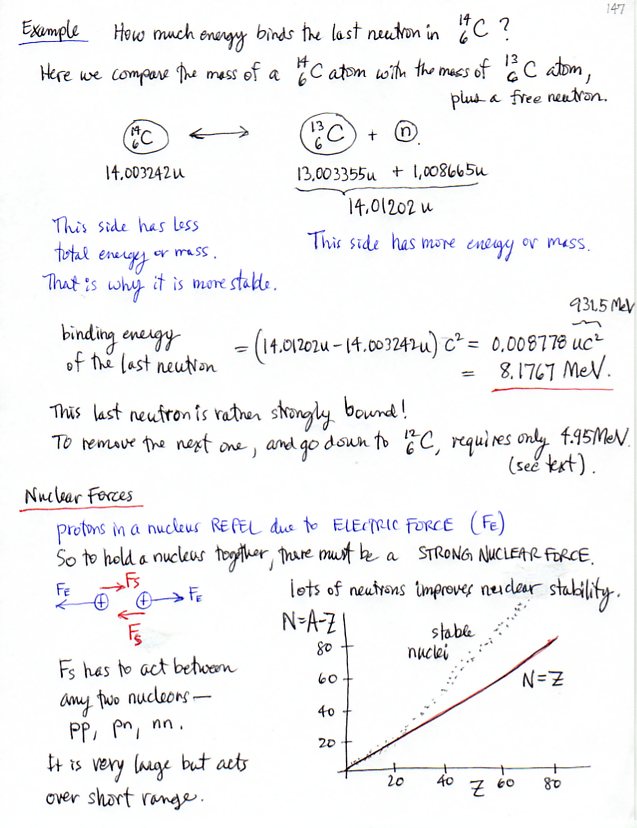 147
Example How much energy binds the last neutron in ¹⁴₆C ?
Here we compare the mass of a ¹⁴₆C atom with the mass of ¹³₆C atom,
plus a free neutron.
¹⁴₆C ⟷ ¹³₆C + n
14.003242u 13.003355u + 1.008665u
14.01202 u
This side has less
total energy or mass.
That is why it is more stable.
This side has more energy or mass.
931.5 MeV
binding energy
of the last neutron = (14.01202u - 14.003242u) c² = 0.008778 uc²
= 8.1767 MeV.
This last neutron is rather strongly bound!
To remove the next one, and go down to ¹²₆C, requires only 4.95 MeV.
(see text).
Nuclear Forces
protons in a nucleus REPEL due to ELECTRIC FORCE (FE)
So to hold a nucleus together, there must be a STRONG NUCLEAR FORCE.
FS
FE + + FE
FS
lots of neutrons improves nuclear stability.
N=A-Z
80
60
40
20
stable
nuclei
N=Z
20 40 Z 60 80
FS has to act between
any two nucleons —
pp, pn, nn.
It is very large but acts
over short range.